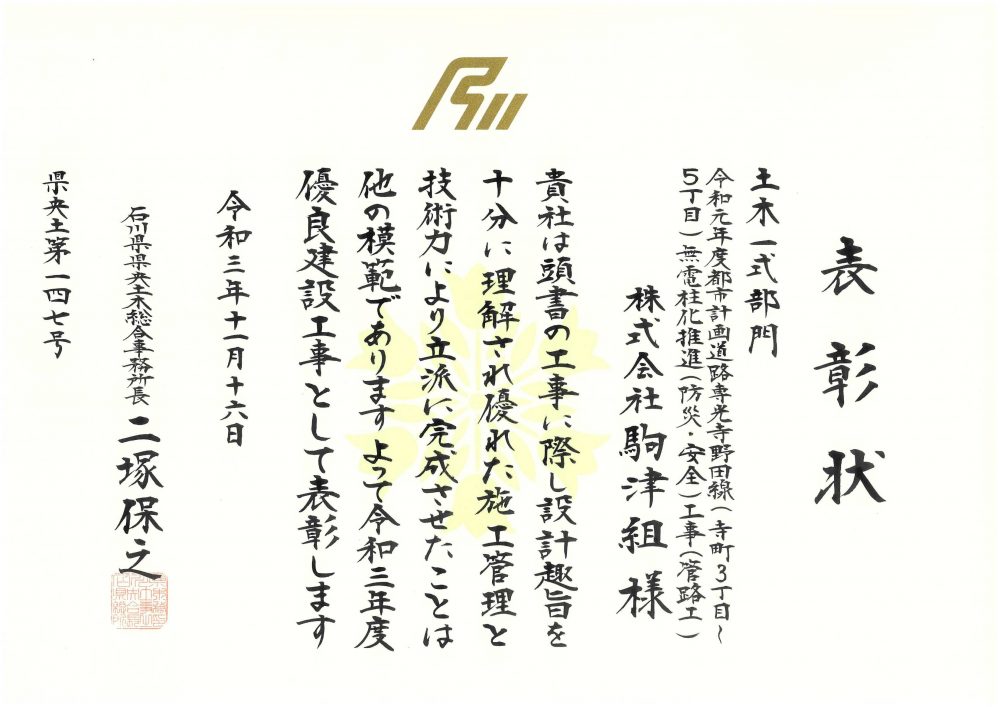 表彰状
土木一式部門
令和元年度都市計画道路専光寺野田線(寺町3丁目~
5丁目)無電柱化推進(防災・安全)工事(管路工)
株式会社駒津組様
貴社は頭書の工事に際し設計趣旨を
十分に理解され優れた施工管理と
技術力により立派に完成させたことは
他の模範でありますよって令和三年度
優良建設工事として表彰します
令和三年十一月十六日
石川県県央土木総合事務所長 二塚保之
県央土第一四七号